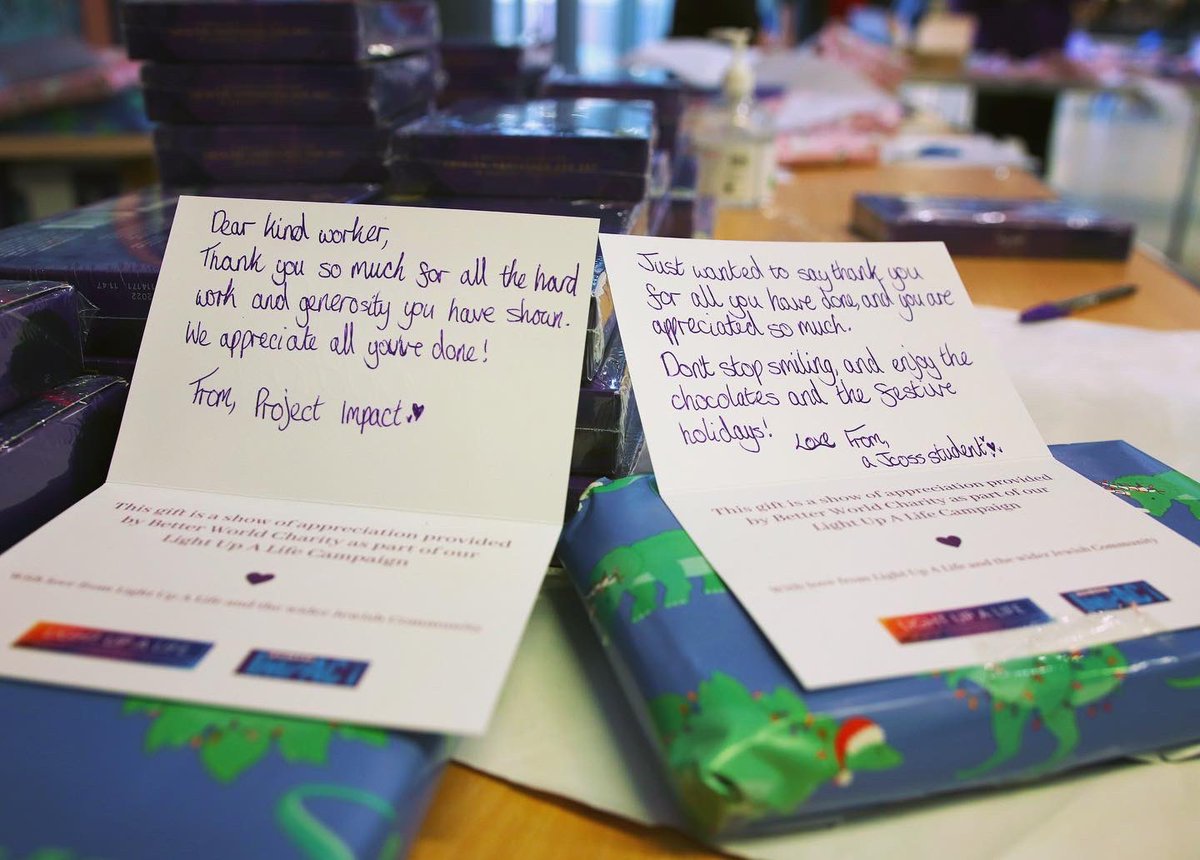 Dear kind worker,
Thank you so much for all the hard
work and generosity you have shown.
We appreciate all you've done!
From, Project Impact.
This gift is a show of appreciation provided
by Better World Charity as part of our
Light Up A Life Campaign
With love from Light Up A Life and the wider Jewish Community
LIGHT UP A LIFE
IMPACT
Just wanted to say thank you
for all you have done, and you are
appreciated so much.
Dont stop smiling, and enjoy the
chocolates and the festive
holidays! Love From,
a Jcoss student.
This gift is a show of appreciation provided
by Better World Charity as part of our
Light Up A Life Campaign
With love from Light Up A Life and the wider Jewish Community
LIGHT UP A LIFE
IMPACT
2022
11:47